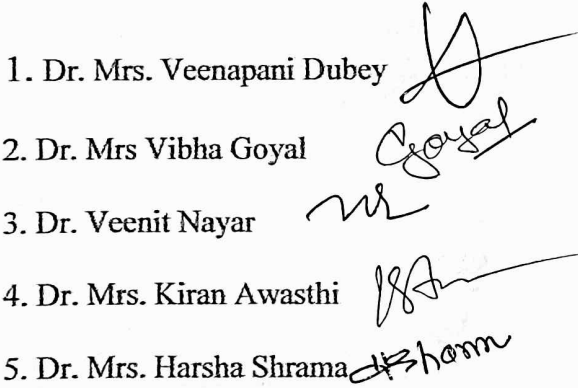 1. Dr. Mrs. Veenapani Dubey
2. Dr. Mrs Vibha Goyal Goyal
3. Dr. Veenit Nayar
4. Dr. Mrs. Kiran Awasthi
5. Dr. Mrs. Harsha Shrama